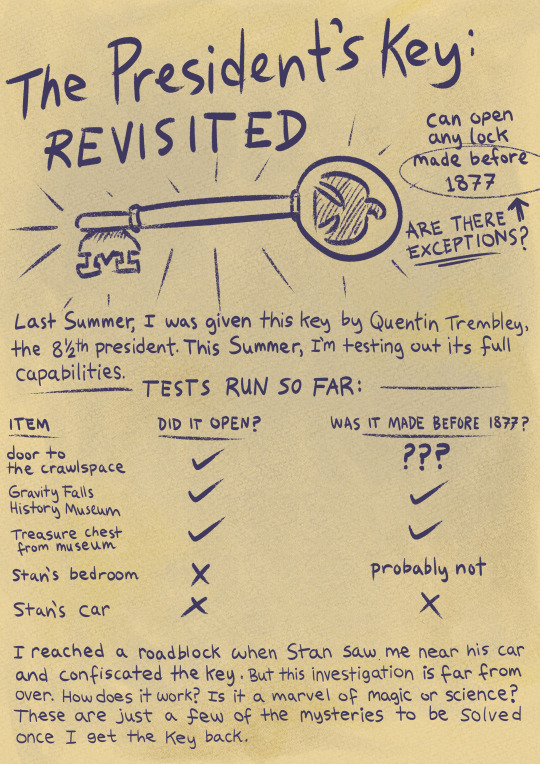 The President's Key:
REVISITED
can open
any lock
made before
1877
ARE THERE
EXCEPTIONS?
Last Summer, I was given this key by Quentin Trembley,
the 8½th president. This Summer, I'm testing out its full
capabilities.
TESTS RUN SO FAR:
ITEM DID IT OPEN? WAS IT MADE BEFORE 1877?
door to
the crawlspace ✓ ???
Gravity Falls
History Museum ✓ ✓
Treasure chest
from museum ✓ ✓
Stan's bedroom X probably not
Stan's car X X
I reached a roadblock when Stan saw me near his car
and confiscated the key. But this investigation is far from
over. How does it work? Is it a marvel of magic or science?
These are just a few of the mysteries to be solved
once I get the key back.